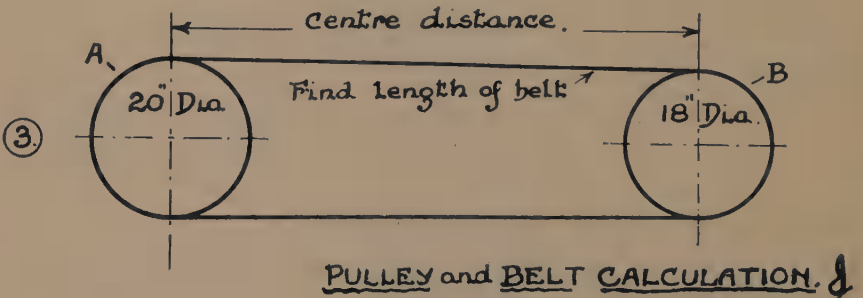 centre distance.
A
B
20" Dia
Find Length of belt
18" Dia.
3.
PULLEY and BELT CALCULATION.